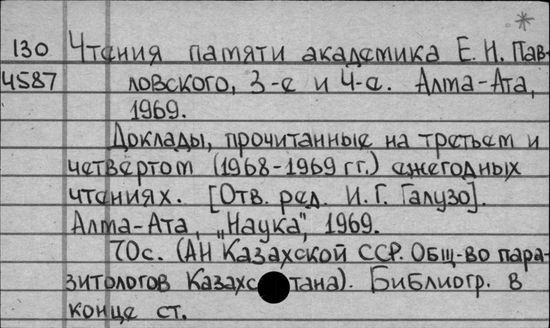 *
130 Чтения памяти академика Е. Н. Пав-
4587 ловского, 3-е и 4-е. Алма-Ата,
1969.
Доклады, прочитанные на третьем и
четвертом (1968-1969 гг.) ежегодных
чтениях. [Отв. ред. И. Г. Галузо].
Алма-Ата, „Наука", 1969.
70с. (АН Казахской ССР. Общ-во пара-
зитологов Казахс тана). Библиогр. в
конце ст.